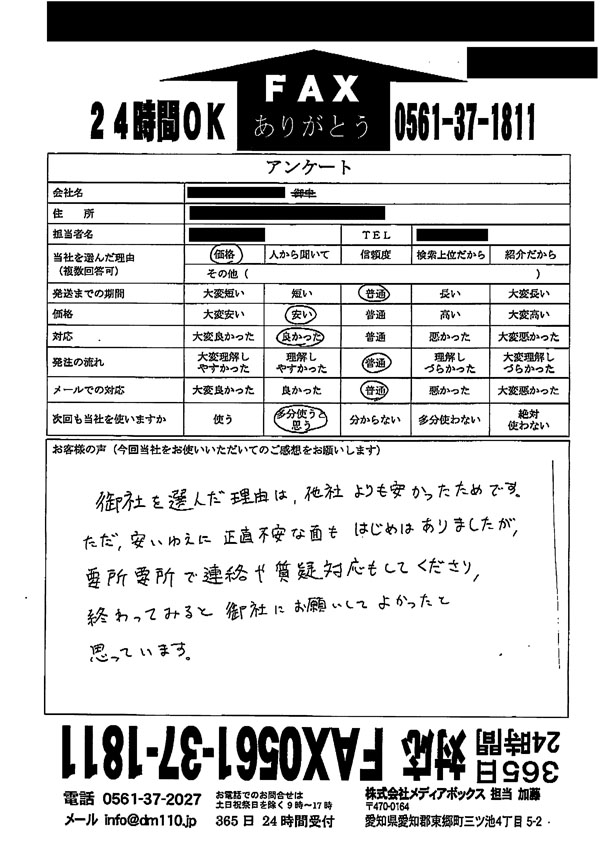 FAX
ありがとう
24時間OK
0561-37-1811
アンケート
会社名 御中
住 所
担当者名 TEL
当社を選んだ理由（複数回答可） 価格 人から聞いて 信頼度 検索上位だから 紹介だから
その他（ ）
発送までの期間 大変短い 短い 普通 長い 大変長い
価格 大変安い 安い 普通 高い 大変高い
対応 大変良かった 良かった 普通 悪かった 大変悪かった
発注の流れ 大変理解しやすかった 理解しやすかった 普通 理解しづらかった 大変理解しづらかった
メールでの対応 大変良かった 良かった 普通 悪かった 大変悪かった
次回も当社を使いますか 使う 多分使うと思う 分からない 多分使わない 絶対使わない
お客様の声（今回当社をお使いいただいてのご感想をお願いします）
御社を選んだ理由は、他社よりも安かったためです。
ただ、安いゆえに正直不安な面もはじめはありましたが、
要所要所で連絡や質疑対応もしてくださり、
終わってみると御社にお願いしてよかったと
思っています。
365日
24時間
対応 FAX0561-37-1811
電話 0561-37-2027
メール info@dm110.jp
お電話でのお問合せは
土日祝祭日を除く9時～17時
365日 24時間受付
株式会社メディアボックス 担当 加藤
〒470-0164
愛知県愛知郡東郷町三ツ池4丁目5-2